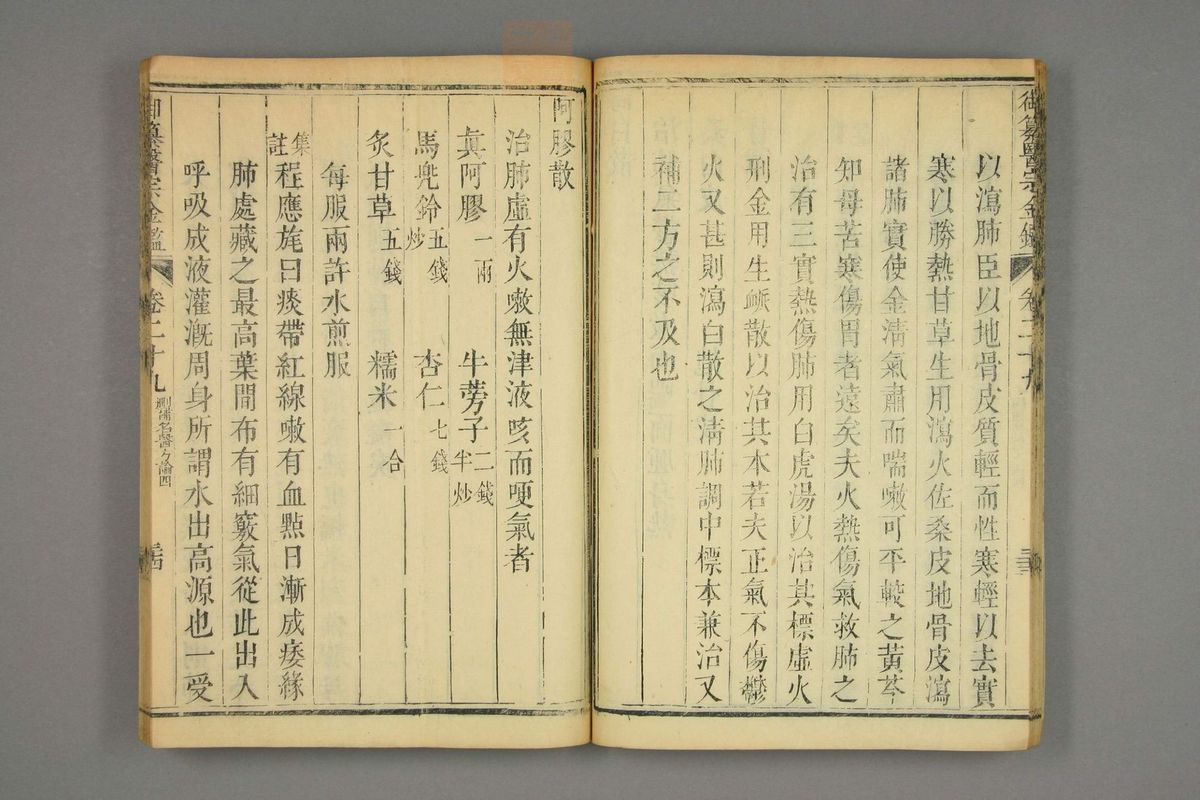 御纂醫宗金鑑 卷二十九 三三
以瀉肺臣以地骨皮質輕而性寒輕以去實
寒以勝熱甘草生用瀉火佐桑皮地骨皮瀉
諸肺實使金淸氣肅而喘嗽可平較之黃芩
知母苦寒傷胃者遠矣夫火熱傷氣救肺之
治有三實熱傷肺用白虎湯以治其標虛火
刑金用生䘑散以治其本若夫正氣不傷鬱
火又甚則瀉白散之淸肺調中標本兼治又
補二方之不及也
阿膠散
治肺虛有火嗽無津液咳而哽氣者
眞阿膠一兩 牛蒡子二錢半炒
馬兠鈴五錢炒 杏仁七錢
炙甘草五錢 糯米一合
每服兩許水煎服
集註程應旄曰痰帶紅線嗽有血點日漸成痿緣
肺處藏之最高葉間布有細竅氣從此出入
呼吸成液灌漑周身所謂水出高源也一受
御纂醫宗金鑑 卷二十九 刪補名醫方論四 三四